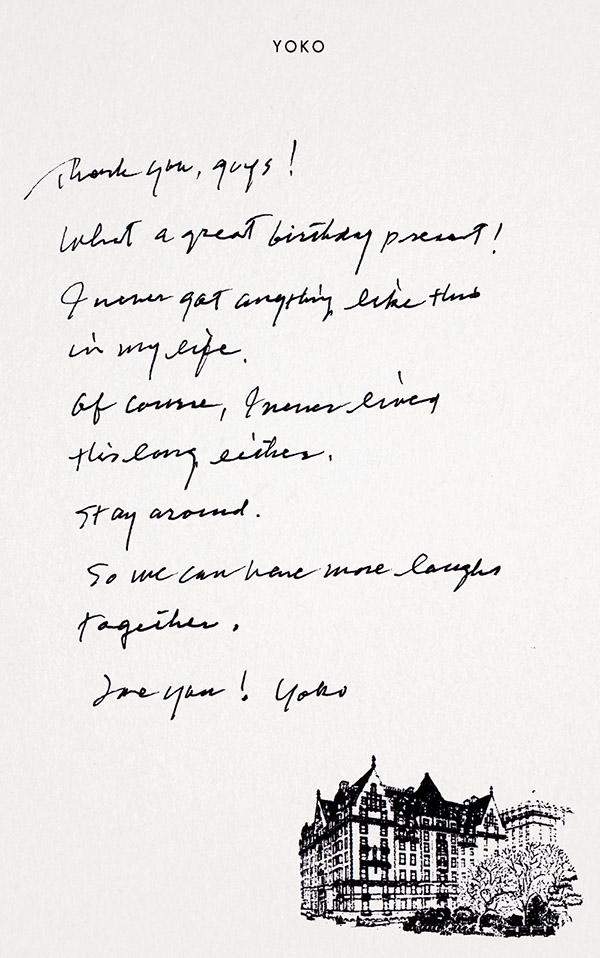 YOKO
Thank you, guys!
What a great birthday present!
I never got anything like this
in my life.
Of course, I never lived
this long either.
Stay around.
So we can have more laughs
together.
Love you! Yoko